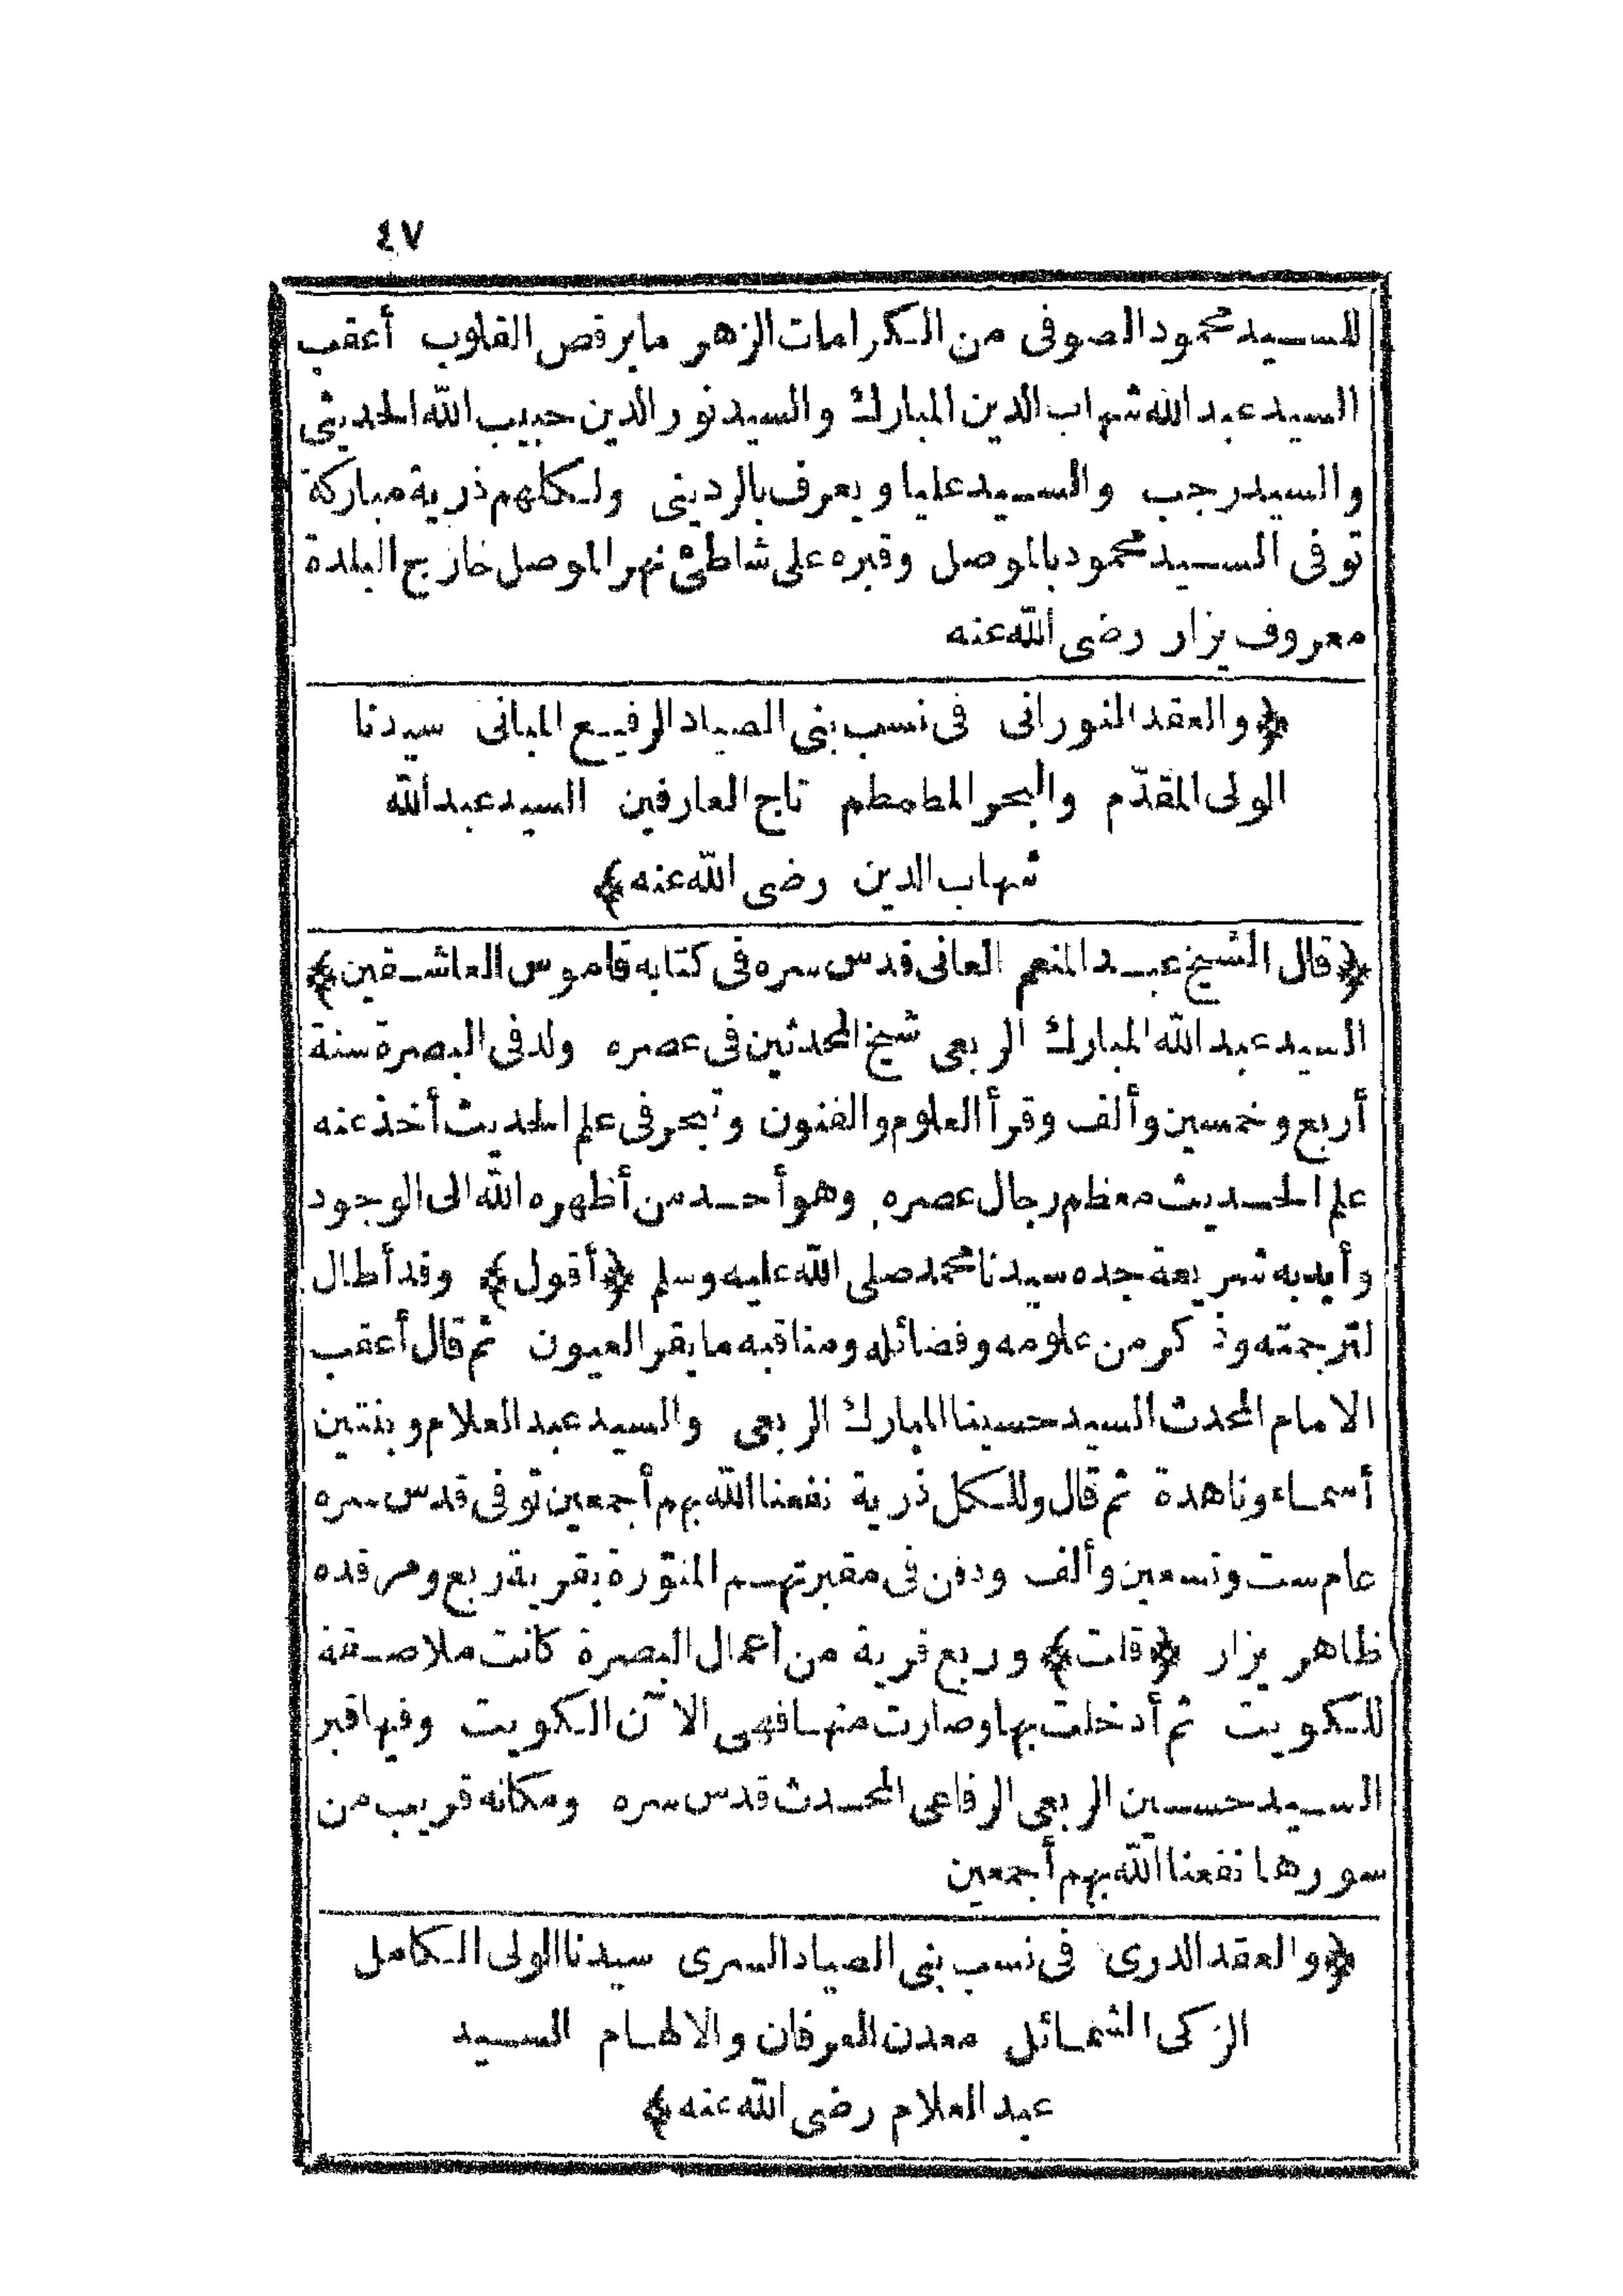 ٤٧
للسيد محمود الصوفى من الكرامات الزهر ما يرقص القلوب أعقب
السيد عبد الله شهاب الدين المبارك والسيد نور الدين حبيب الله الحديثى
والسيد رجب والسيد عليا ويعرف بالردينى ولكلهم ذرية مباركة
توفى السيد محمود بالموصل وقبره على شاطئ نهر الموصل خارج البلدة
معروف يزار رضى الله عنه
﴿والعقد النورانى فى نسب بنى الصياد الرفيع المبانى سيدنا
الولى المقدّم والبحر المطمطم تاج العارفين السيد عبد الله
شهاب الدين رضى الله عنه﴾
﴿قال الشيخ عبد المنعم العانى قدس سره فى كتابه قاموس العاشقين﴾
السيد عبد الله المبارك الربعى شيخ المحدثين فى عصره ولد فى البصرة سنة
أربع وخمسين وألف وقرأ العلوم والفنون وتبحر فى علم الحديث أخذ عنه
علم الحديث معظم رجال عصره وهو أحد من أظهره الله الى الوجود
وأيد به شريعة جده سيدنا محمد صلى الله عليه وسلم ﴿أقول﴾ وقد أطال
لترجمته وذكر من علومه وفضائله ومناقبه ما يقر العيون ثم قال أعقب
الامام المحدث السيد حسينا المبارك الربعى والسيد عبد العلام وبنتين
أسماء وناهدة ثم قال وللكل ذرية نفعنا الله بهم أجمعين توفى قدس سره
عام ست وتسعين وألف ودفن فى مقبرتهم المنوّرة بقرية ربع ومرقده
ظاهر يزار ﴿قلت﴾ وربع قرية من أعمال البصرة كانت ملاصقة
للكويت ثم أدخلت بها وصارت منها فهى الآن الكويت وفيها قبر
السيد حسين الربعى الرفاعى المحدث قدس سره ومكانه قريب من
سورها نفعنا الله بهم أجمعين
﴿والعقد الدرى فى نسب بنى الصياد السرى سيدنا الولى الكامل
الزكى الشمائل معدن العرفان والالهام السيد
عبد العلام رضى الله عنه﴾